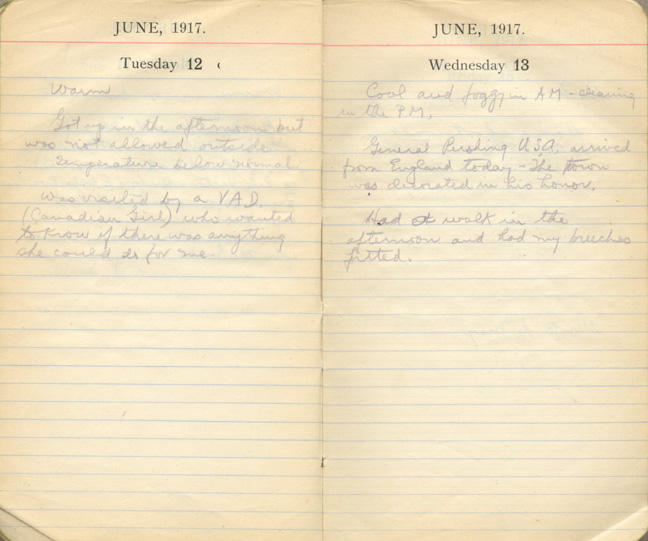 JUNE, 1917.
Tuesday 12
Warm
Got up in the afternoon but
was not allowed outside
Temperature below normal
Was visited by a VAD.
(Canadian Girl) who wanted
to know if there was anything
she could do for me.
JUNE, 1917.
Wednesday 13
Cool and foggy in AM - clearing
in the PM.
General Pershing USA. arrived
from England today - The town
was decorated in his honor.
Had a walk in the
afternoon and had my breeches
fitted.